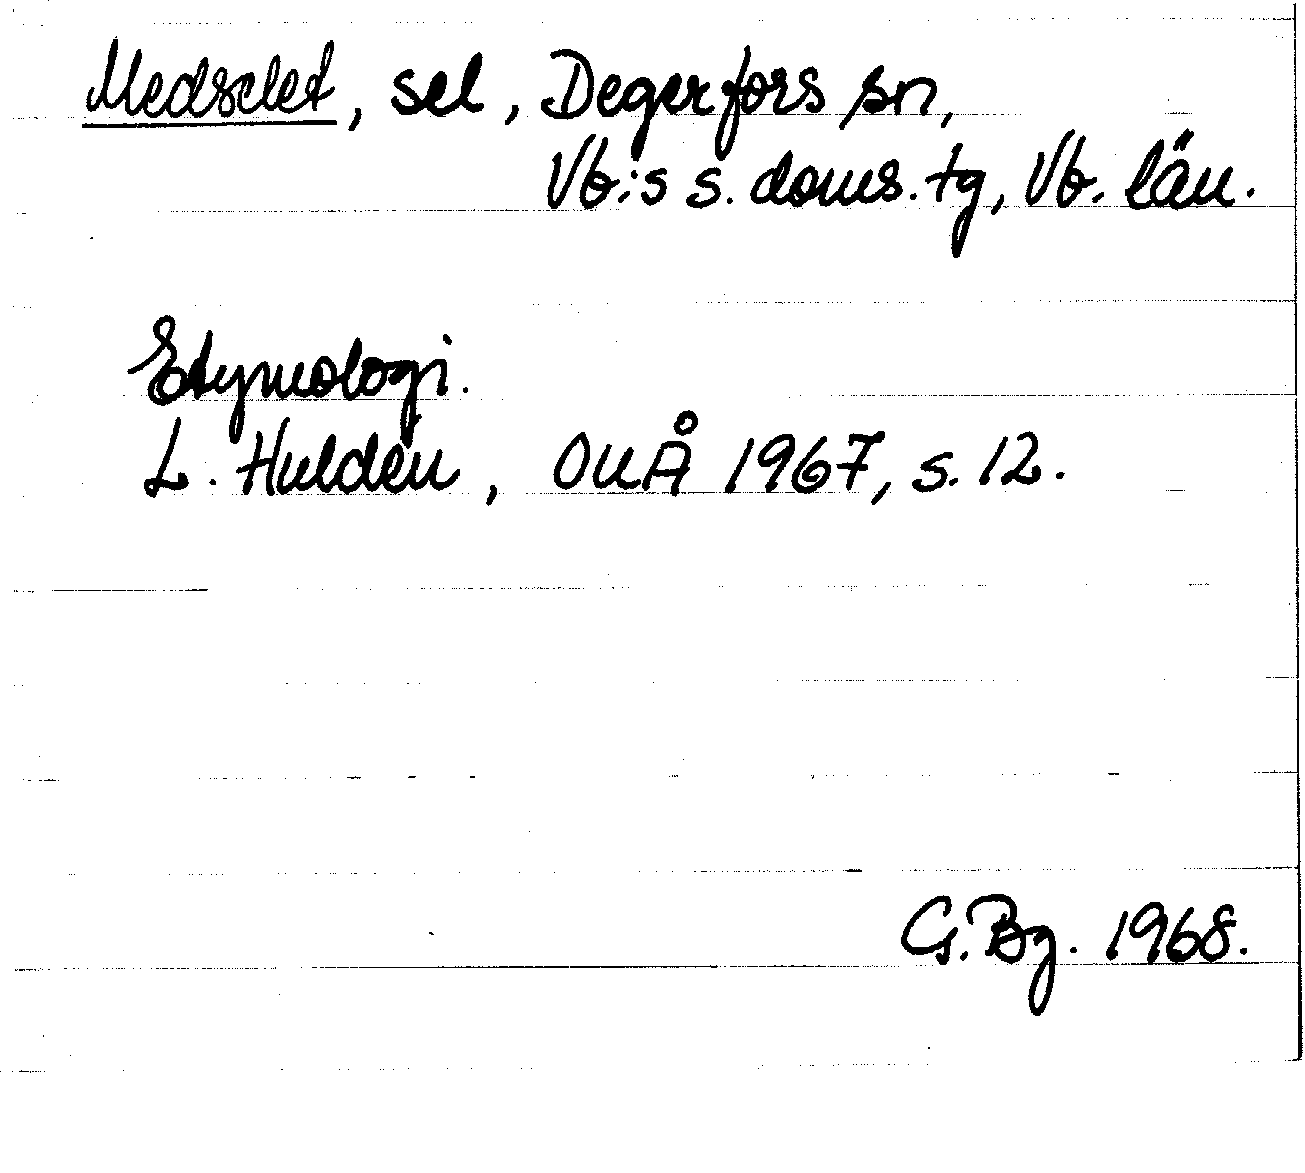 Medselet, sel, Degerfors sn,
Vb:s s. doms. tg, Vb. län.
Etymologi.
L. Huldén, OUÅ 1967, s. 12.
G. Bg. 1968.